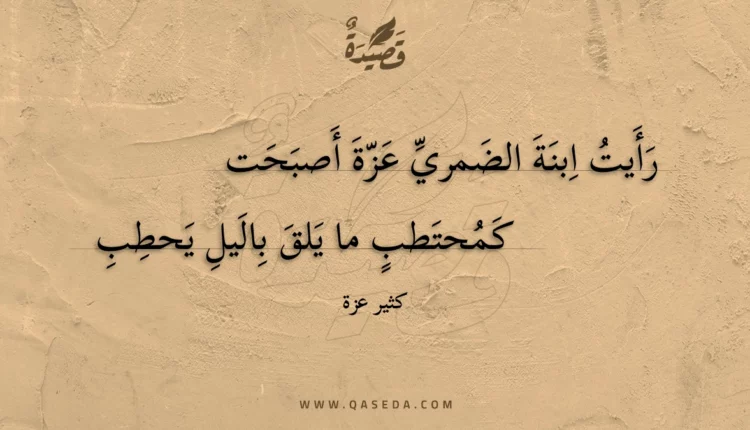 قَصِيدَةٌ
رَأَيتُ اِبنَةَ الضَمريِّ عَزّةَ أَصبَحَت
كَمُحتَطبٍ ما يَلقَ بِالَيلِ يَحطِبِ
كثير عزة
WWW.QASEDA.COM